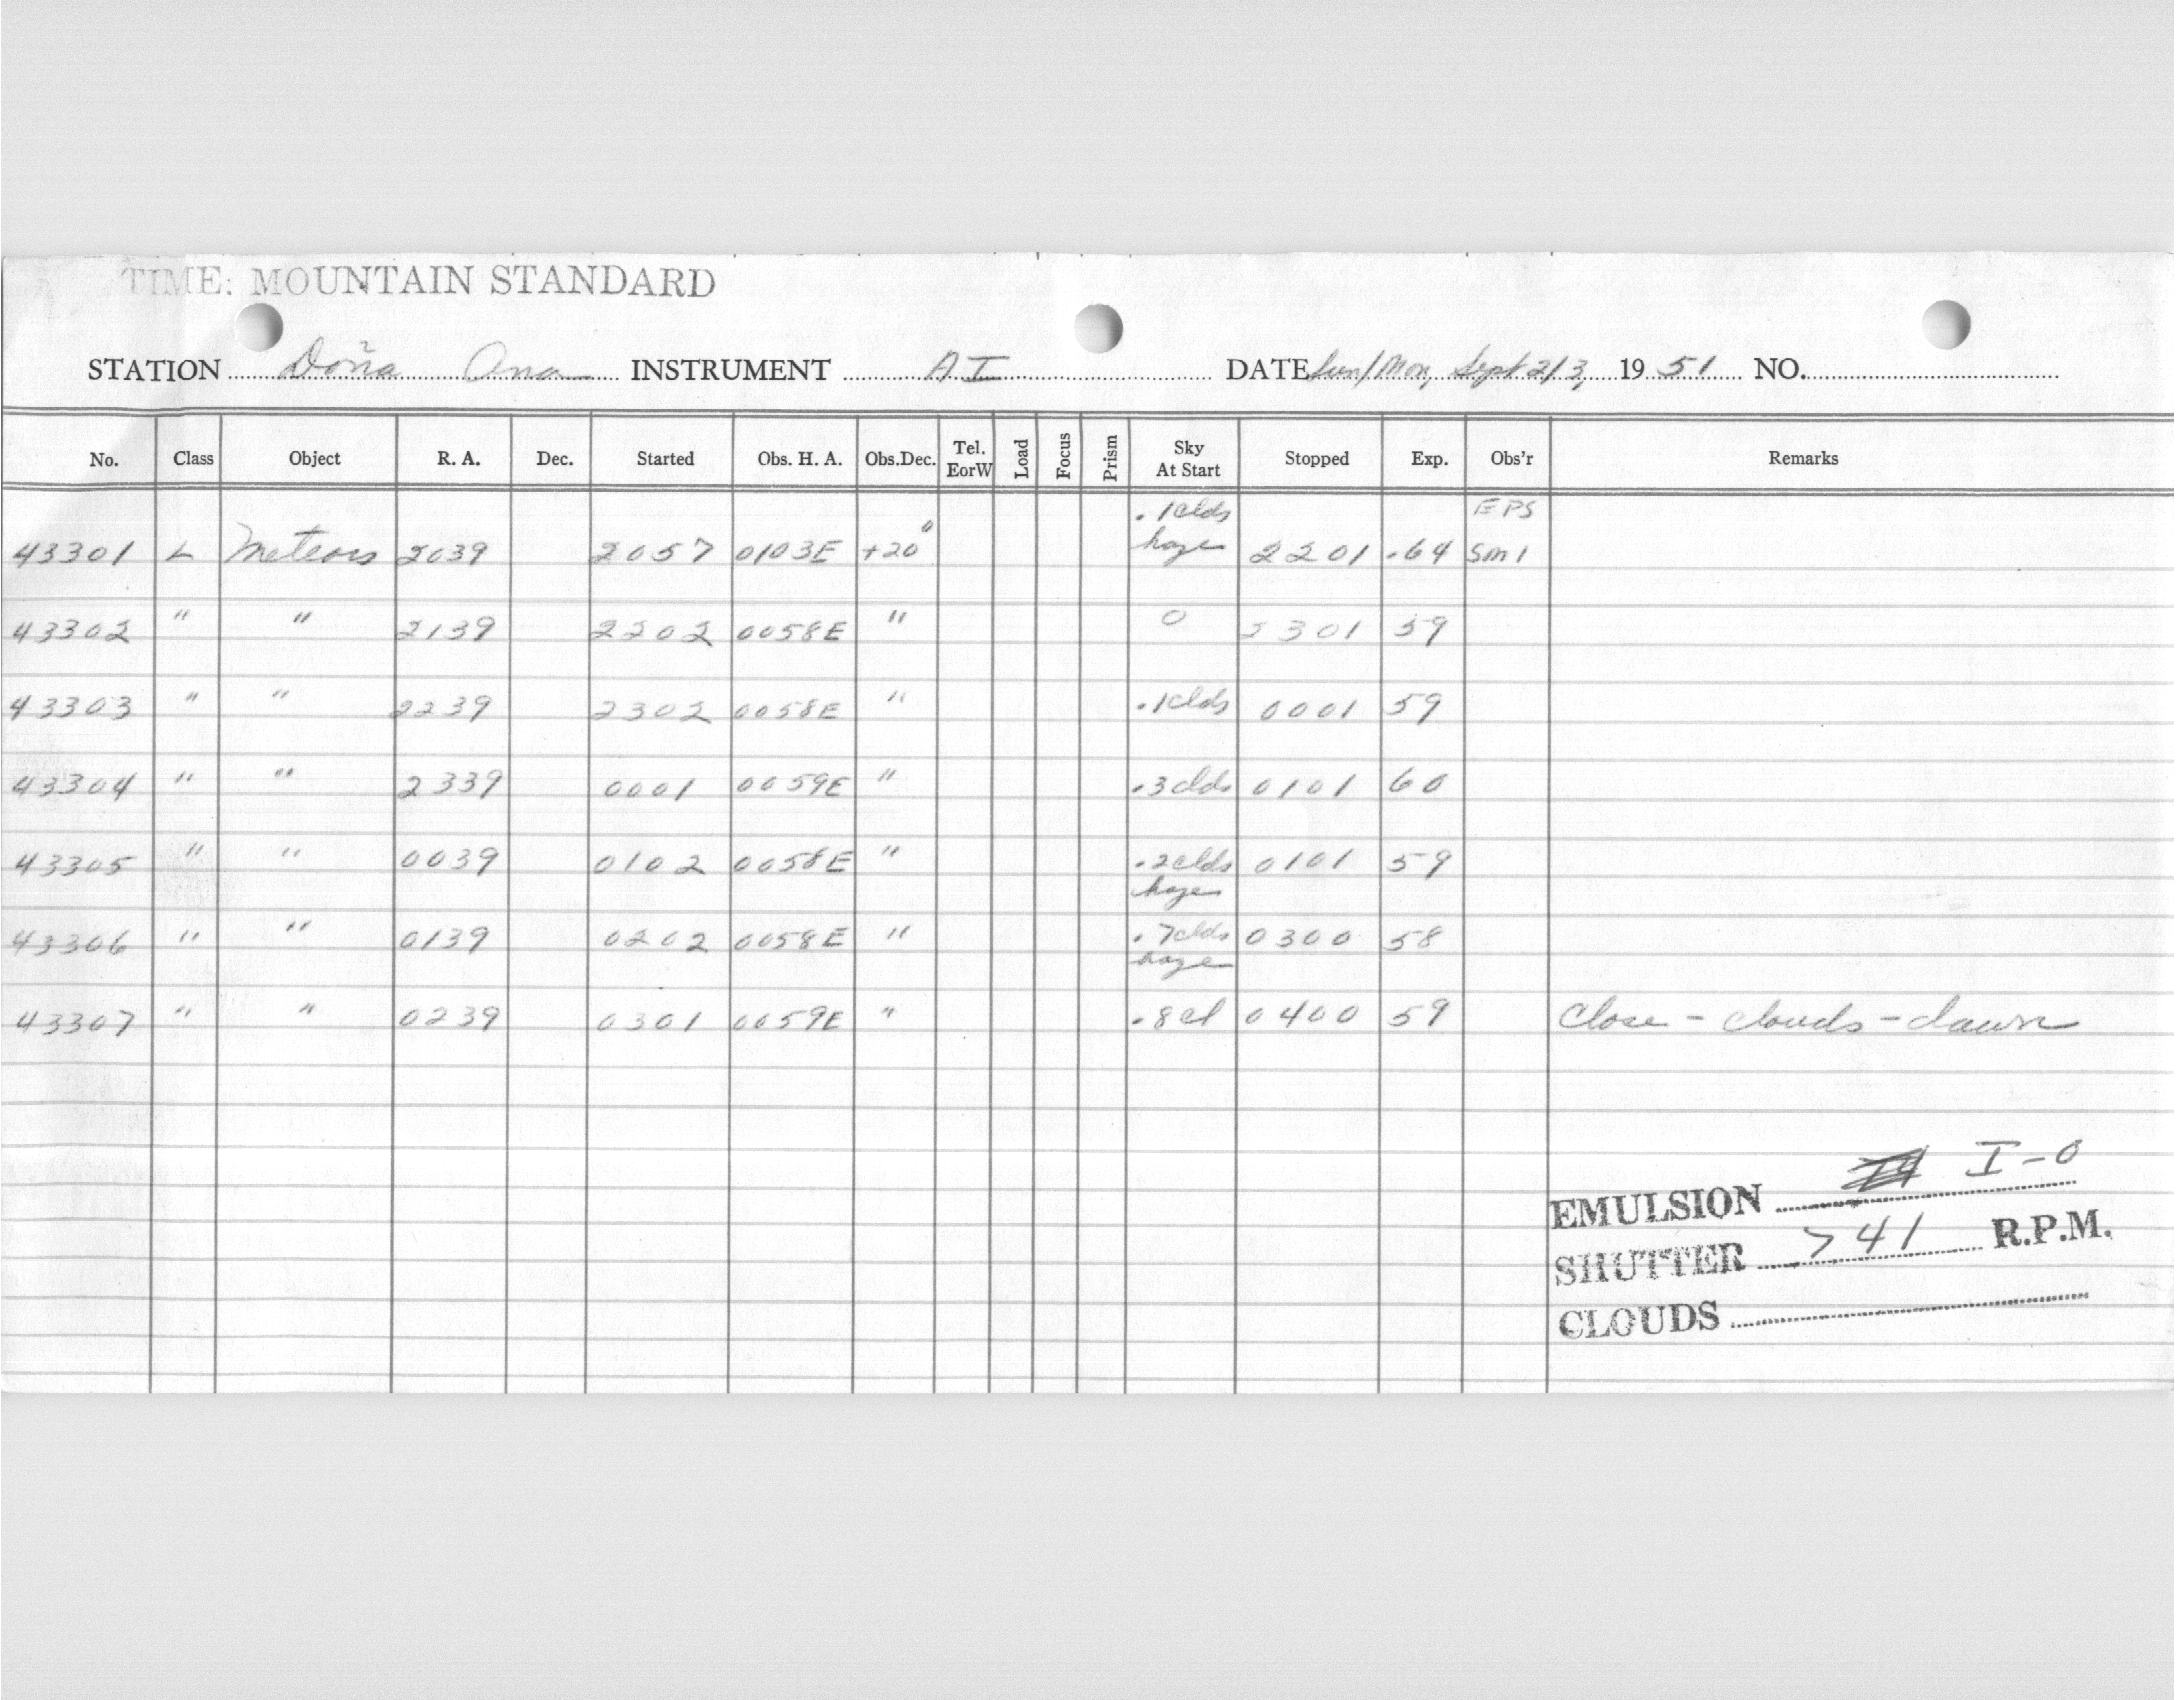 TIME: MOUNTAIN STANDARD
STATION Doña Ana INSTRUMENT AI DATE Sun/Mon, Sept 2/3, 1951 NO.
No. Class Object R. A. Dec. Started Obs. H. A. Obs.Dec. Tel. EorW Load Focus Prism Sky At Start Stopped Exp. Obs'r Remarks
.1clds EPS
43301 L Meteors 2039 2057 0103E +20° haze 2201 .64 Sm1
43302 " " 2139 2202 0058E " 0 2301 59
43303 " " 2239 2302 0058E " .1clds 0001 59
43304 " " 2339 0001 0059E " .3clds 0101 60
43305 " " 0039 0102 0058E " .2clds 0101 59
haze
43306 " " 0139 0202 0058E " .7clds 0300 58
haze
43307 " " 0239 0301 0059E " .8cl 0400 59 Close - clouds - dawn
EMULSION I-O
SHUTTER >41 R.P.M.
CLOUDS